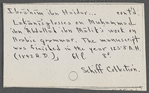 Ibrahim ibn Haidar... cont'd
Lokaniglosses on Muhammad
ibn Abdallah ibn Malik's work on
Arabic grammar. The manuscript
was finished in the year 1258 A.H
(1842 A.D.). 61 l. 8°
Schiff Collection.